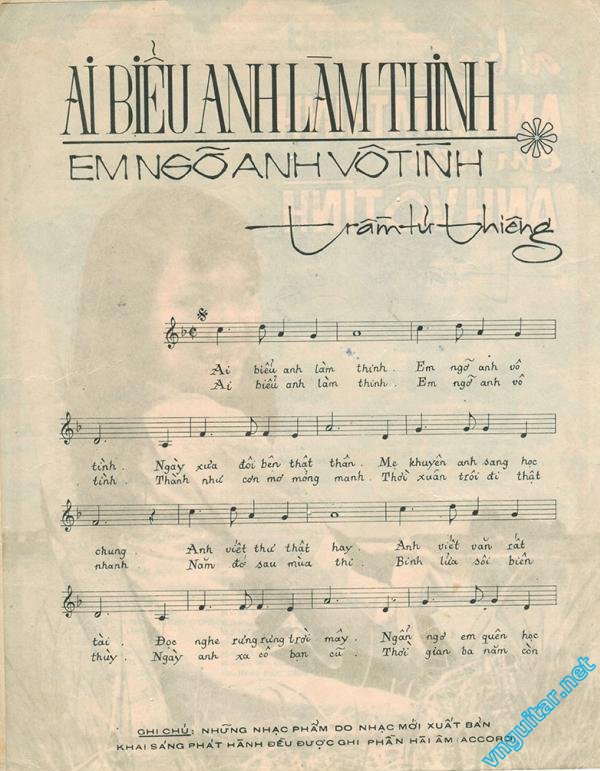 AI BIỂU ANH LÀM THINH
EM NGỠ ANH VÔ TÌNH
trầm tử thiêng
Ai biểu anh làm thinh. Em ngỡ anh vô
Ai biểu anh làm thinh. Em ngỡ anh vô
tình. Ngày xưa đôi bên thật thân. Mẹ khuyên anh sang học
tình. Thành như cơn mơ mỏng manh. Thời xuân trôi đi thật
chung. Anh viết thư thật hay. Anh viết văn rất
nhanh Năm đó sau mùa thi. Binh lửa sôi biên
tài. Đọc nghe rưng rưng trời mây. Ngẩn ngơ em quên học
thùy. Ngày anh xa cô bạn cũ. Thời gian ba năm còn
GHI CHÚ: NHỮNG NHẠC PHẨM DO NHẠC MỚI XUẤT BẢN
KHAI SÁNG PHÁT HÀNH ĐỀU ĐƯỢC GHI PHẦN HÀI ÂM (ACCORD)
vnguitar.net